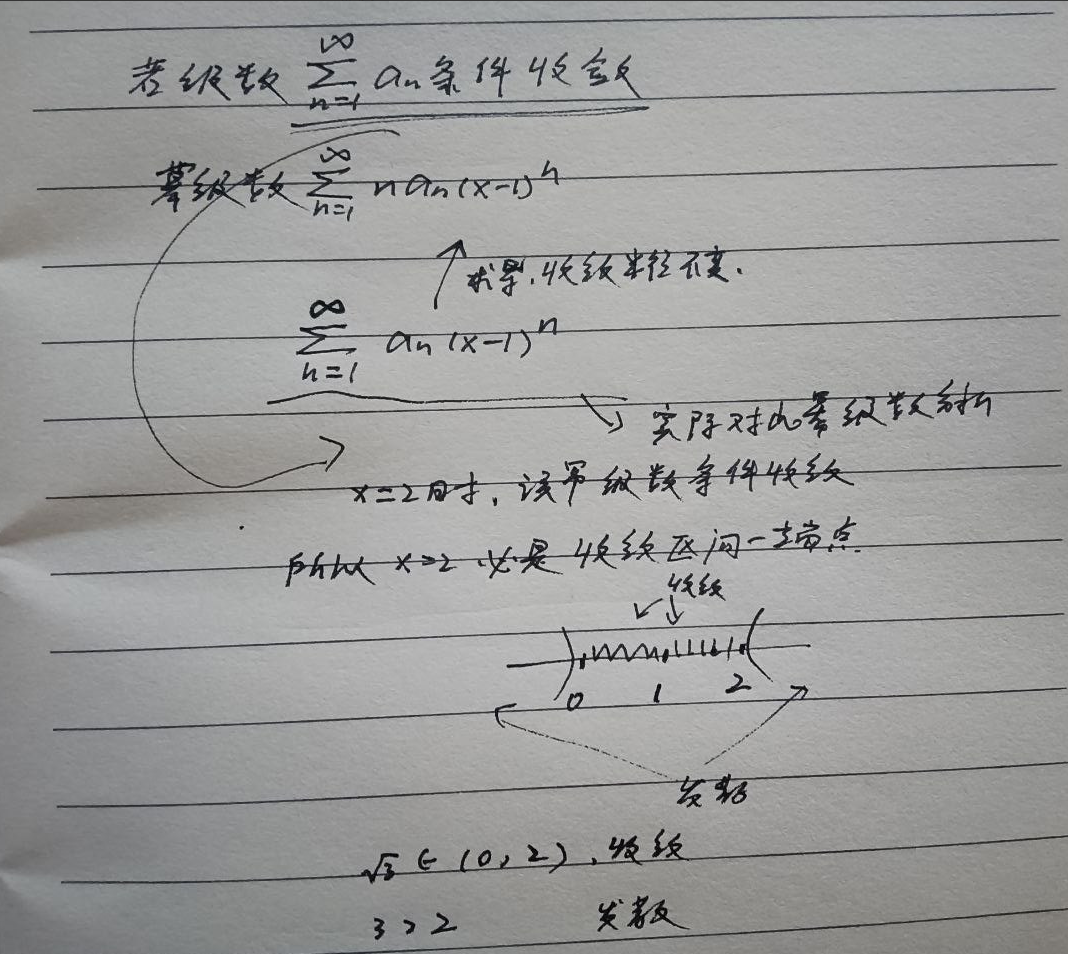 若级数 ∑_{n=1}^{∞} an 条件收敛
幂级数 ∑_{n=1}^{∞} n an (x-1)^n
求导,收敛半径不变.
∑_{n=1}^{∞} an (x-1)^n
实际对此幂级数分析
x=2时,该幂级数条件收敛
所以 x=2 必是收敛区间一端点
收敛
0 1 2
发散
√3 ∈ (0,2),收敛
3>2 发散